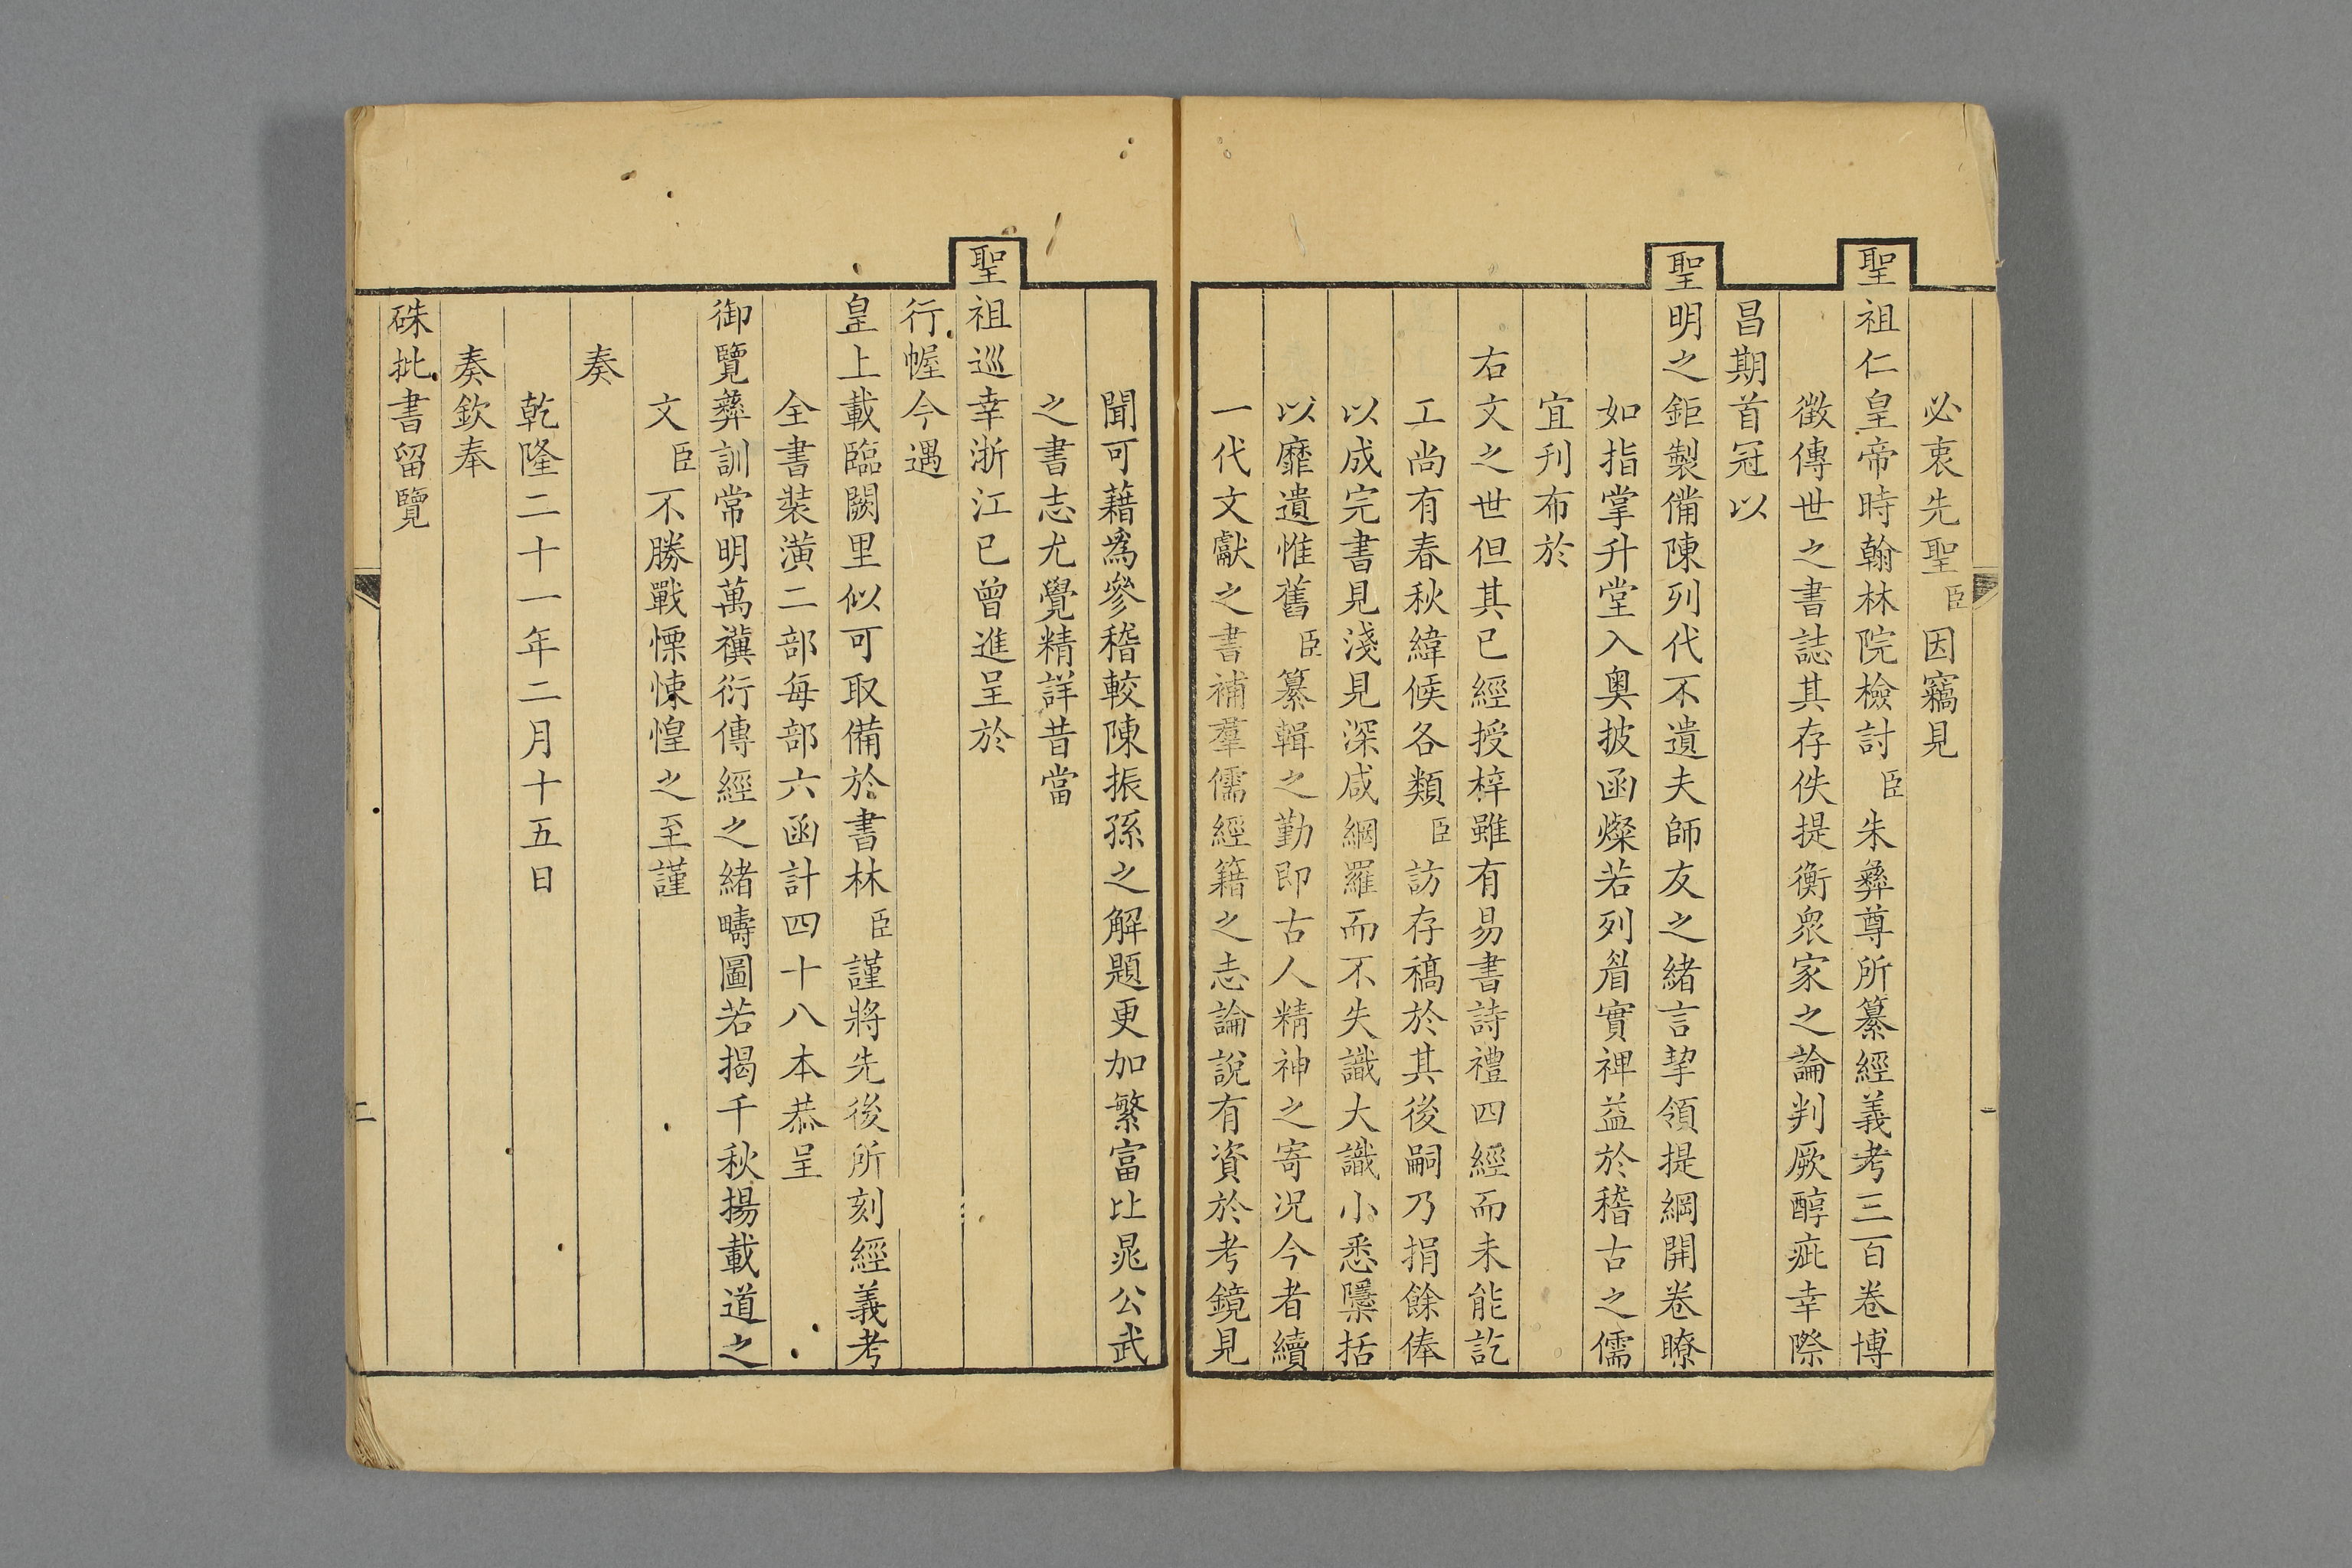 必衷先聖臣因竊見
聖祖仁皇帝時翰林院檢討臣朱彝尊所纂經義考三百卷博
徵傳世之書誌其存佚提衡衆家之論判厥醇疵幸際
昌期首冠以
聖明之鉅製備陳列代不遺夫師友之緒言挈領提綱開卷瞭
如指掌升堂入奥披函燦若列眉實裨益於稽古之儒
宜刋布於
右文之世但其已經授梓雖有易書詩禮四經而未能訖
工尚有春秋緯候各類臣訪存稿於其後嗣乃捐餘俸
以成完書見淺見深咸網羅而不失識大識小悉櫽括
以靡遺惟舊臣纂輯之勤即古人精神之寄况今者續
一代文獻之書補羣儒經籍之志論說有資於考鏡見
聞可藉為參稽較陳振孫之解題更加繁富比晁公武
之書志尤覺精詳昔當
聖祖巡幸浙江已曾進呈於
行幄今遇
皇上載臨闕里似可取備於書林臣謹將先後所刻經義考
全書裝潢二部每部六函計四十八本恭呈
御覽彝訓常明萬禩衍傳經之緒疇圖若揭千秋揚載道之
文臣不勝戰慄悚惶之至謹
奏
乾隆二十一年二月十五日
奏欽奉
硃批書留覽
二